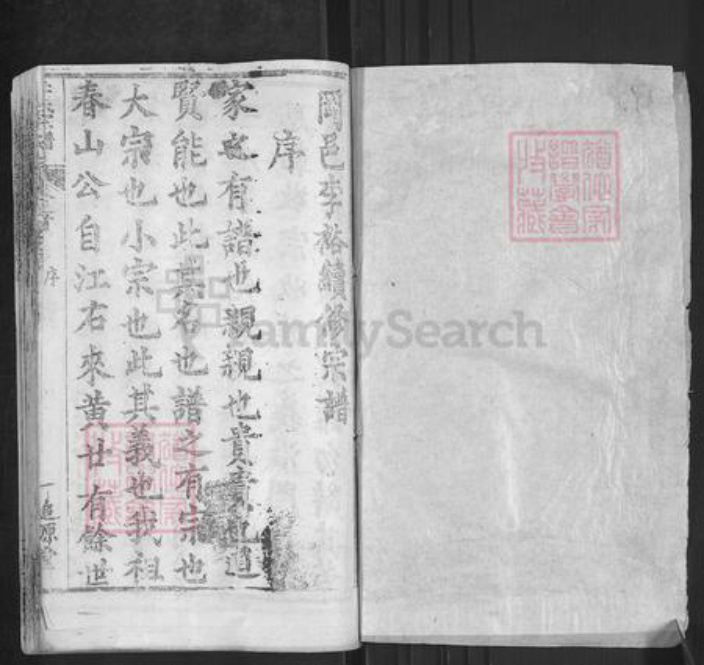 岡邑李裕續修宗譜
序
家之有譜也親親也貴貴也道
賢能也此其名也譜之有宗也
大宗也小宗也此其義也我祖
春山公自江右來黄廿有餘世
序
一 追源堂
FamilySearch